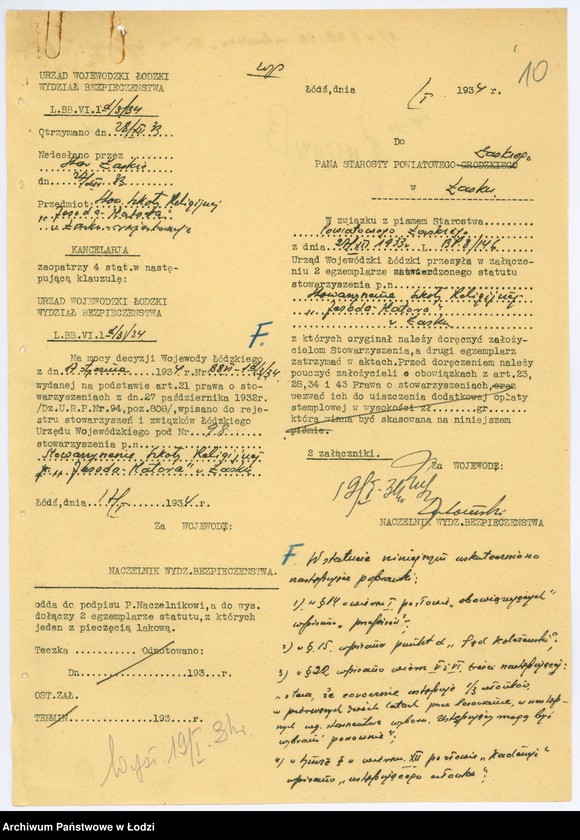 10
URZĄD WOJEWODZKI ŁODZKI
WYDZIAŁ BEZPIECZENSTWA
L.BB.VI.1d/3/34
Otrzymano dn. 28/XII 33
Nadesłano przez
Star. Łaski
dn. 33
Przedmiot: Stow. Szkoły Religijnej
"Jesoda-Hatora"
w Łasku
KANCELARJA
zaopatrzy 4 stat.w nastę-
pującą klauzulę:
URZĄD WOJEWODZKI ŁODZKI
WYDZIAŁ BEZPIECZENSTWA
L.BB.VI.1d/3/34
F.
Na mocy decyzji Wojewody Łódzkiego
z dn. stycznia 1934 r. Nr.
wydanej na podstawie art.21 prawa o sto-
warzyszeniach z dn.27 października 1932r.
/Dz.U.R.P.Nr.94,poz.808/,wpisano do reje-
stru stowarzyszeń i związków Łódzkiego
Urzędu Wojewódzkiego pod Nr. 98
stowarzyszenia p.n.
Stowarzyszenie Szkoły Religijnej
"Jesoda-Hatora" w Łasku
Łódź,dnia 17/I 1934 r.
Za WOJEWODĘ:
NACZELNIK WYDZ.BEZPIECZENSTWA.
odda do podpisu P.Naczelnikowi,a do wys.
dołączy 2 egzemplarze statutu,z których
jeden z pieczęcią lakową.
Teczka Odnotowano:
Dn. 193 r.
OST.ZAŁ.
TERMIN 193 r.
Wyśł. 19/I 34r.
Łódź,dnia /I 1934 r.
Do
PANA STAROSTY POWIATOWEGO GRODZKIEGO Łaskiego
w Łasku
W związku z pismem Starostwa
Powiatowego Łaskiego
z dnia 27/XII 1933 r. L. BP.8/146
Urząd Wojewódzki Łódzki przesyła w załącze-
niu 2 egzemplarze zatwierdzonego statutu
stowarzyszenia p.n.
Stowarzyszenie Szkoły Religijnej
"Jesoda-Hatora"
w Łasku
z których oryginał należy doręczyć założy-
cielom Stowarzyszenia,a drugi egzemplarz
zatrzymać w aktach.Przed doręczeniem należy
pouczyć założycieli o obowiązkach z art.23,
28,34 i 43 Prawa o stowarzyszeniach, oraz
wezwać ich do uiszczenia dodatkowej opłaty
stemplowej w wysokości zł. gr.
która winna być skasowana na niniejszem
piśmie.
2 załączniki.
Za WOJEWODĘ:
19/I 34r
NACZELNIK WYDZ.BEZPIECZENSTWA
F. W statucie niniejszym uskuteczniono
następujące poprawki:
1/ w §14 w wierszu I po słowie "obowiązujących"
wpisano "przepisów";
2/ w §15 wpisano punkt d "Sąd Koleżeński";
3/ w §22 wpisano wiersz V i VI treści następującej:
"stwa, że corocznie ustępuje 1/3 członków,
w pierwszych dwóch latach przez losowanie, w następ-
nych wg. starszeństwa wyboru. Ustępujący mogą być
wybrani ponownie";
4/ w wierszu XII po słowie "Kadencji"
wpisano "ustępującego członka";
Archiwum Państwowe w Łodzi